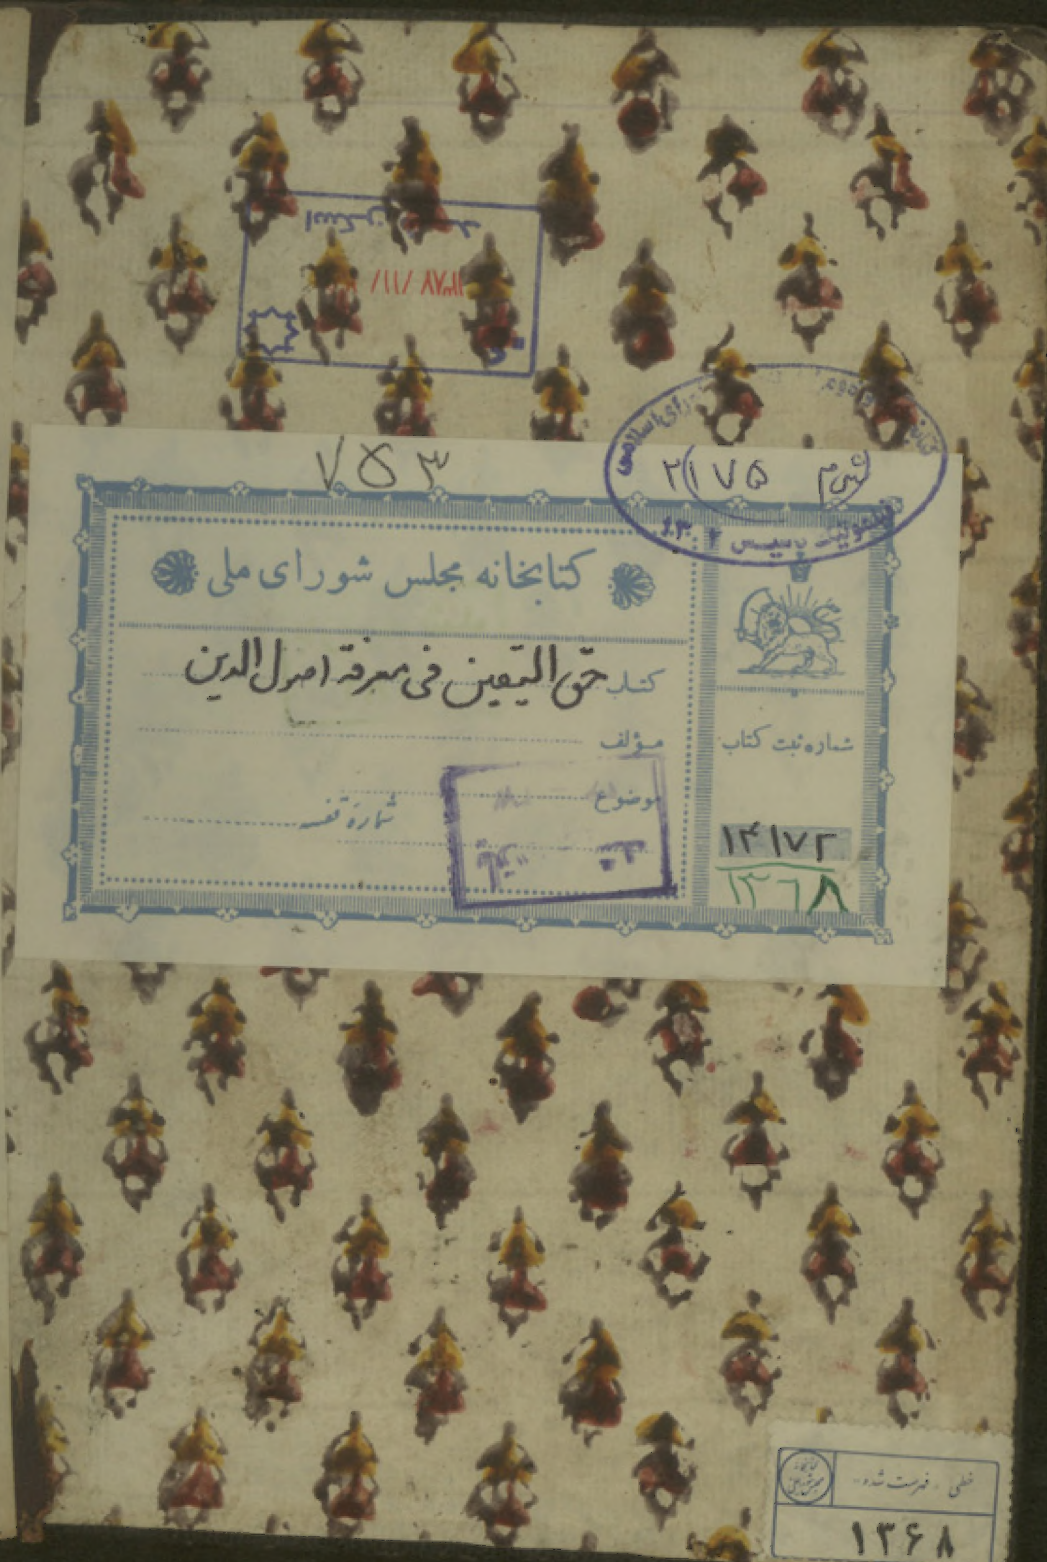 ۷۵۳
۲۱۷۵
کتابخانه مجلس شورای ملی
کتاب حق الیقین فی معرفة اصول الدین
مؤلف
موضوع
شماره قفسه
شماره ثبت کتاب
۱۴۱۷۲
۱۳۶۸
خطی - فهرست شده
۱۳۶۸